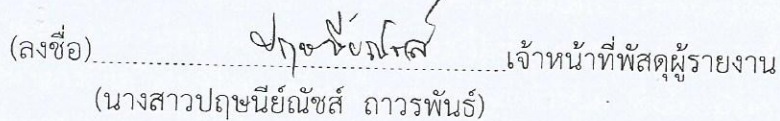 (ลงชื่อ) ปฤษนีย์ณัชส์ เจ้าหน้าที่พัสดุผู้รายงาน
(นางสาวปฤษนีย์ณัชส์ ถาวรพันธ์)